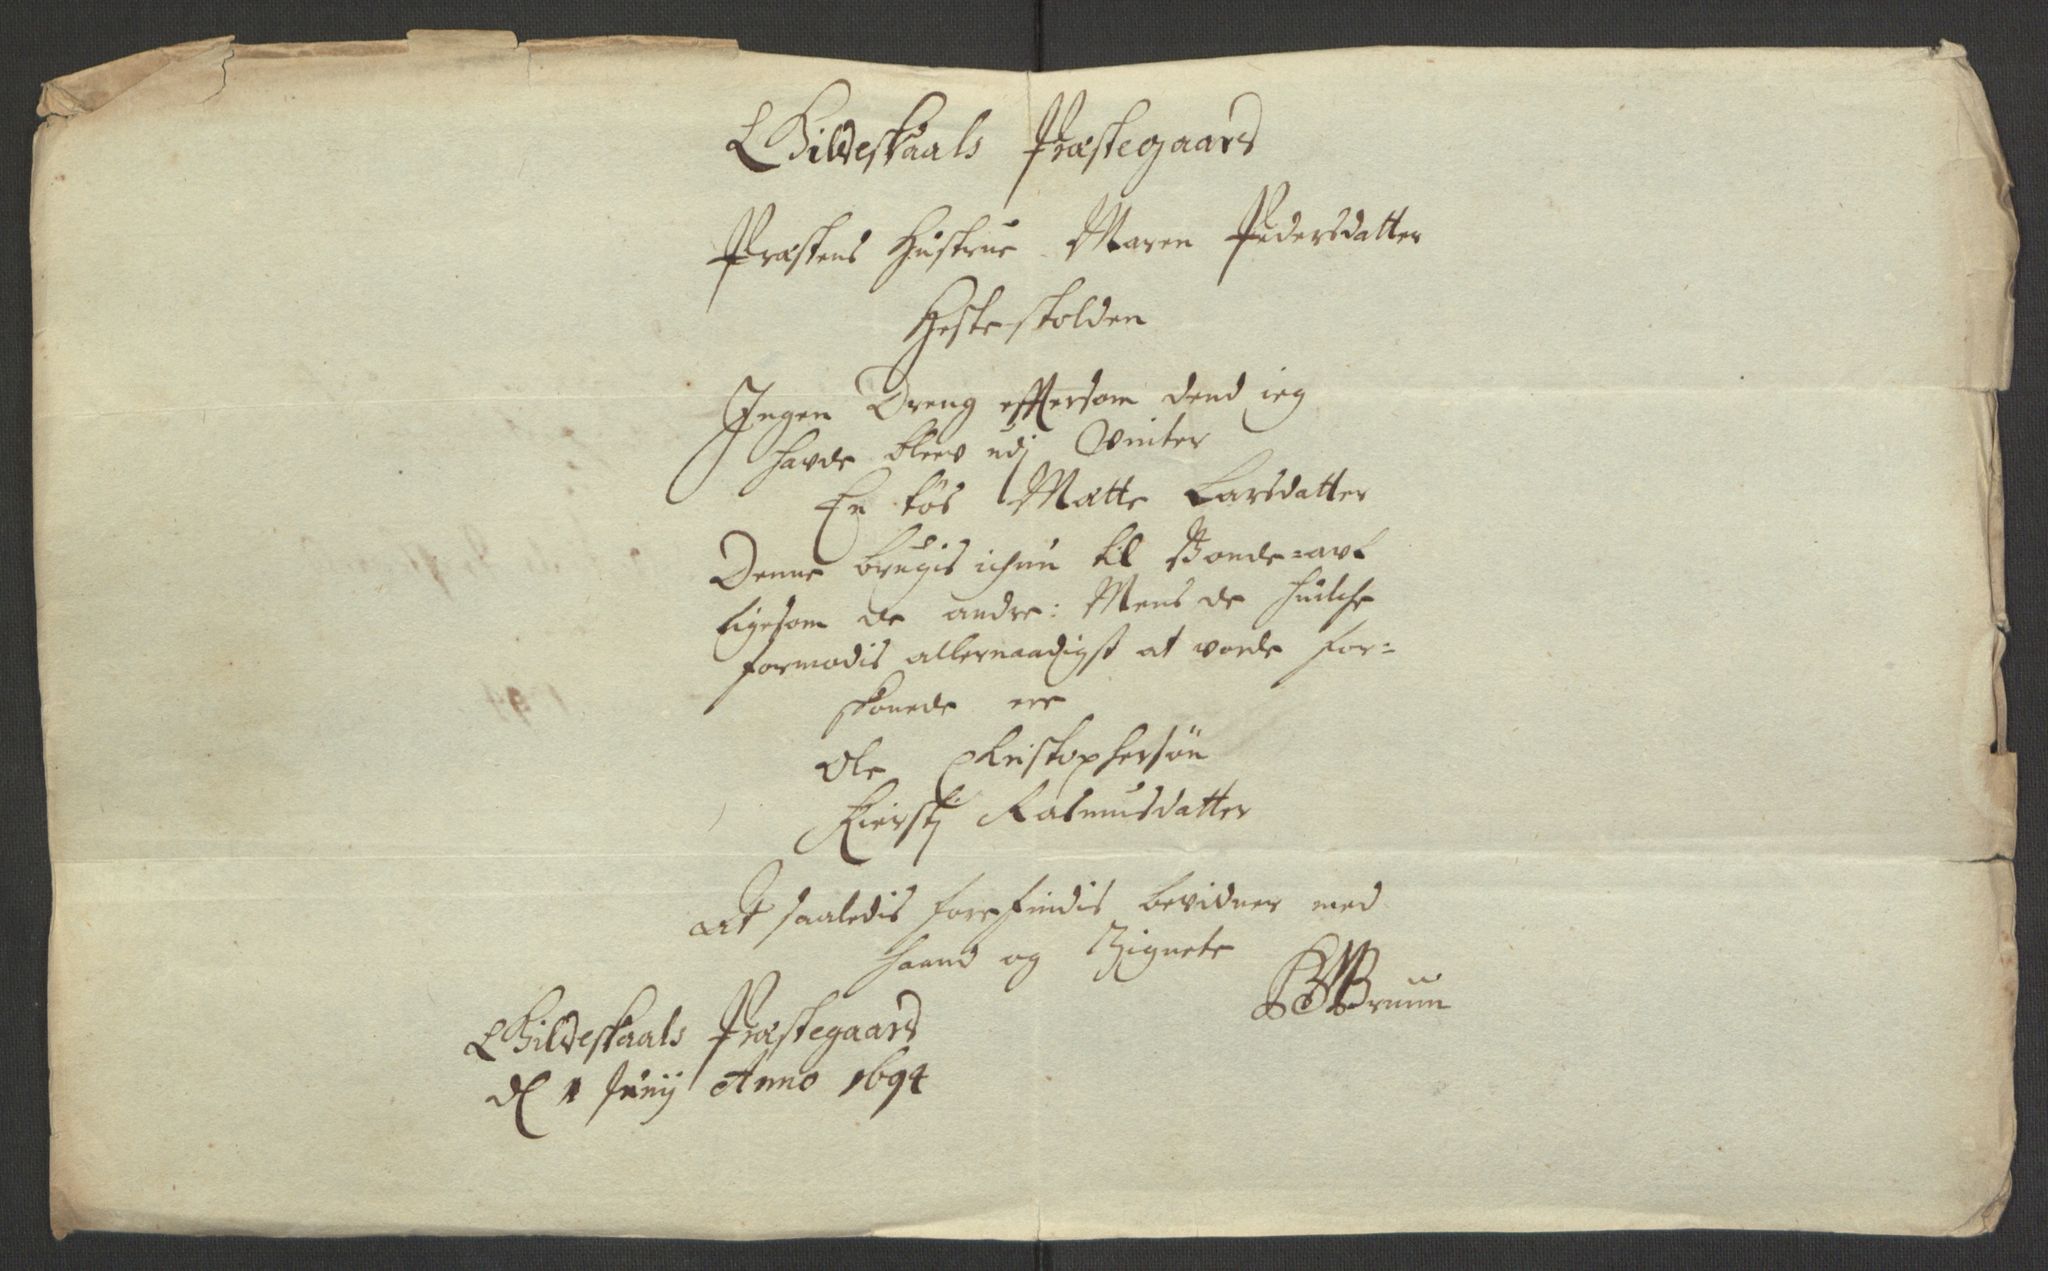 Gildeskaals Præstegaard
Præstens Hustrue Maren Pedersdatter
Heste-skolden
Ingen Dreng efftersom dend ieg
hafde blev udj Vinter
En tøs Mætte Larsdatter
Denne brugis ichun til Bonde=avl
ligesom de andre: Mens de huilche
formodis allernaadigst at vorde for=
skonede ere
Ole Christophersøn
Kierstj Rasmusdatter
At saaledis forefindis bevidner med
haand og Zignete
BBruun
Gildeskaals Præstegaard
d 1 Junij Anno 1694